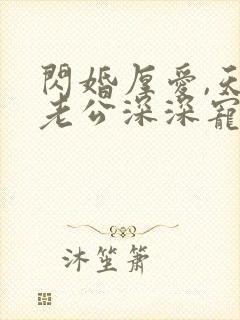 閃婚厚愛,天
老公深深寵
沐笙簫